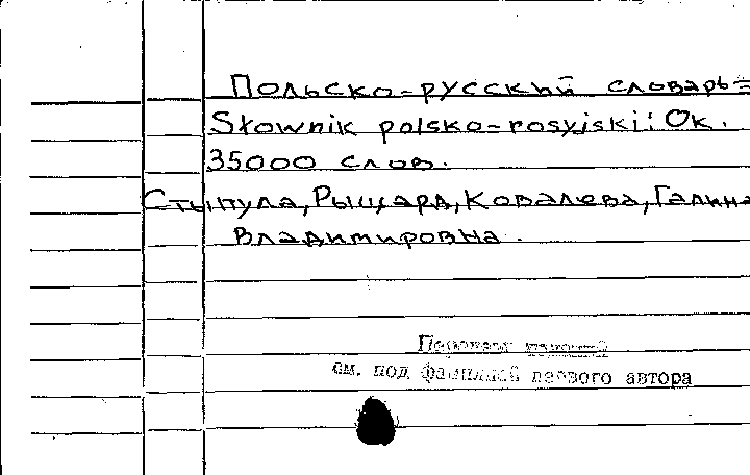 Польско-русский словарь=
Słownik polsko-rosyjski: Ок.
35000 слов.
Стыпула, Рыщард, Ковалева, Галина
Владимировна.
Перечень изданий
см. под фамилией первого автора